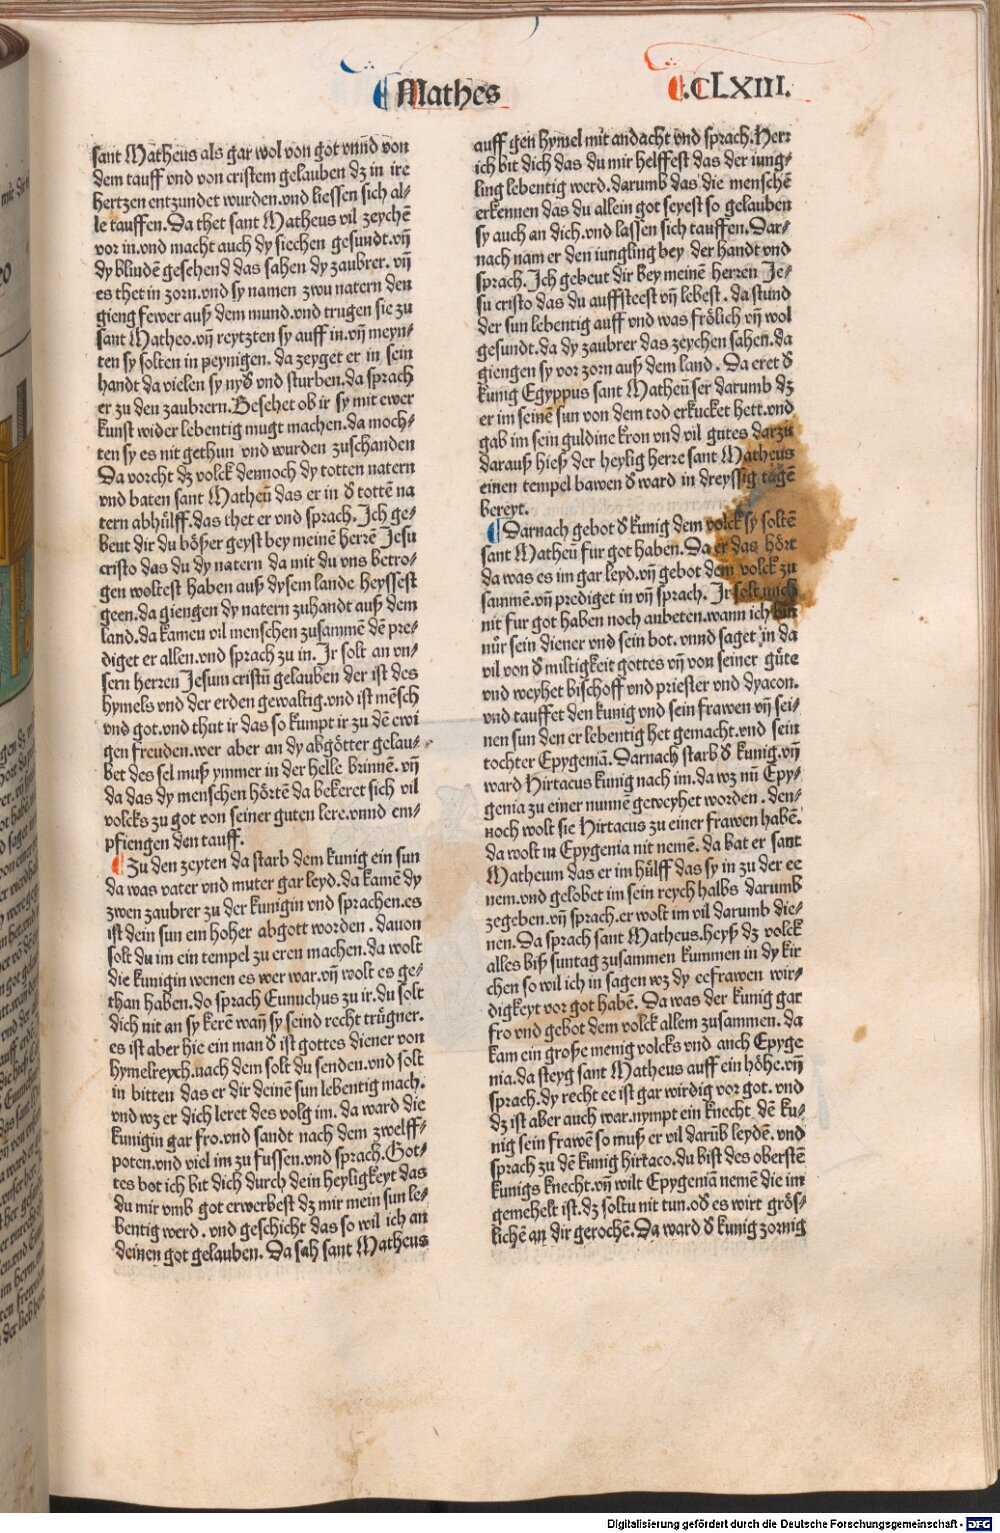 Mathes
.CLXIII.
sant Matheus als gar wol von got vnnd von
dem tauff vnd von cristem gelauben dz in ire
hertzen entzundet wurden.vnd liessen sich al⸗
le tauffen.Da thet sant Matheus vil zeychē
vor in.vnd macht auch dy siechen gesundt.vñ
dy blindē gesehend das sahen dy zaubrer. vñ
es thet in zorn.vnd sy namen zwu natern den
gieng fewer auß dem mund.vnd trugen sie zu
sant Matheo.vñ reytzten sy auff in.vñ meyn⸗
ten sy solten in peynigen. da zeyget er in sein
handt da vielen sy nyđ vnd sturben.da sprach
er zu den zaubrern.Besehet ob ir sy mit ewer
kunst wider lebentig mugt machen.da moch⸗
ten sy es nit gethun vnd wurden zuschanden
Da vorcht dz volck dennoch dy totten natern
vnd baten sant Matheū das er in đ tottē na
tern abhülff.das thet er vnd sprach. Ich ge⸗
beut dir du bößer geyst bey meinē herrē Jesu
cristo das du dy natern da mit du vns betro⸗
gen woltest haben auß dysem lande heyssest
geen.da giengen dy natern zuhandt auß dem
land.da kamen vil menschen zusammē dē pre⸗
diget er allen.vnd sprach zu in. Ir solt an vn⸗
sern herren Jesum cristū gelauben der ist des
hymels vnd der erden gewaltig.vnd ist mēsch
vnd got.vnd thut ir das so kumpt ir zu dē ewi
gen freuden.wer aber an dy abgötter gelau⸗
bet des sel muß ymmer in der helle brinnē. vñ
da das dy menschen hörtē da bekeret sich vil
volcks zu got von seiner guten lere.vnnd em⸗
pfiengen den tauff.
Zu den zeyten da starb dem kunig ein sun
da was vater vnd muter gar leyd.da kamē dy
zwen zaubrer zu der kunigin vnd sprachen.es
ist dein sun ein hoher abgott worden . dauon
solt du im ein tempel zu eren machen.da wolt
die kunigin wenen es wer war.vñ wolt es ge⸗
than haben.do sprach Eunuchus zu ir.du solt
dich nit an sy kerē wañ sy seind recht trügner.
es ist aber hie ein man đ ist gottes diener von
hymelreych.nach dem solt du senden.vnd solt
in bitten das er dir deinē sun lebentig mach.
vnd wz er dich leret des volg im. da ward die
kunigin gar fro.vnd sandt nach dem zwelff⸗
poten.vnd viel im zu fussen.vnd sprach.Got⸗
tes bot ich bit dich durch dein heyligkeyt das
du mir vmb got erwerbest dz mir mein sun le⸗
bentig werd . vnd geschicht das so wil ich an
deinen got gelauben. Da sah sant Matheus
auff gen hymel mit andacht vnd sprach.Herr
ich bit dich das du mir helffest das der iung⸗
ling lebentig werd.darumb das die menschē
erkennen das du allein got seyest so gelauben
sy auch an dich.vnd lassen sich tauffen.Dar⸗
nach nam er den iungling bey der handt vnd
sprach.Ich gebeut dir bey meinē herren Je⸗
su cristo das du auffsteest vñ lebest . da stund
der sun lebentig auff vnd was frölich vñ wol
gesundt.da dy zaubrer das zeychen sahen.da
giengen sy vor zorn auß dem land . Da eret đ
kunig Egyppus sant Matheū ser darumb dz
er im seinē sun von dem tod erkucket hett.vnd
gab im sein guldine kron vnd vil gutes darzu
darauß hieß der heylig herre sant Matheus
einen tempel bawen đ ward in dreyssig tagē
bereyt.
Darnach gebot đ kunig dem volck sy soltē
sant Matheū fur got haben. Da er das hört
da was es im gar leyd.vñ gebot dem volck zu
sammē.vñ prediget in vñ sprach. Ir solt mich
nit fur got haben noch anbeten.wann ich bin
nür sein diener vnd sein bot. vnnd saget in da
vil von đ miltigkeit gottes vñ von seiner güte
vnd weyhet bischoff vnd priester vnd dyacon.
vnd tauffet den kunig vnd sein frawen vñ sei⸗
nen sun den er lebentig het gemacht.vnd sein
tochter Epygeniā. Darnach starb đ kunig.vñ
ward Hirtacus kunig nach im.da wz nū Epy⸗
genia zu einer nunnē geweyhet worden . den⸗
noch wolt sie Hirtacus zu einer frawen habē.
da wolt in Epygenia nit nemē. da bat er sant
Matheum das er im hülff das sy in zu der ee
nem.vnd gelobet im sein reych halbs darumb
zegeben.vñ sprach.er wolt im vil darumb die⸗
nen.Da sprach sant Matheus.heyß dz volck
alles biß suntag zusammen kummen in dy kir
chen so wil ich in sagen wz dy eefrawen wir⸗
digkeyt vor got habē. Da was der kunig gar
fro vnd gebot dem volck allem zusammen. da
kam ein große menig volcks vnd auch Epyge
nia.da steyg sant Matheus auff ein höhe.vñ
sprach.dy recht ee ist gar wirdig vor got. vnd
dz ist aber auch war.nympt ein knecht dē ku⸗
nig sein frawē so muß er vil darūb leydē. vnd
sprach zu dē kunig hirtaco.du bist des oberstē
kunigs knecht.vñ wilt Epygeniā nemē die im
gemehelt ist.dz soltu nit tun.ođ es wirt grös⸗
lichē an dir gerochē.Da ward đ kunig zornig
Digitalisierung gefördert durch die Deutsche Forschungsgemeinschaft - DFG